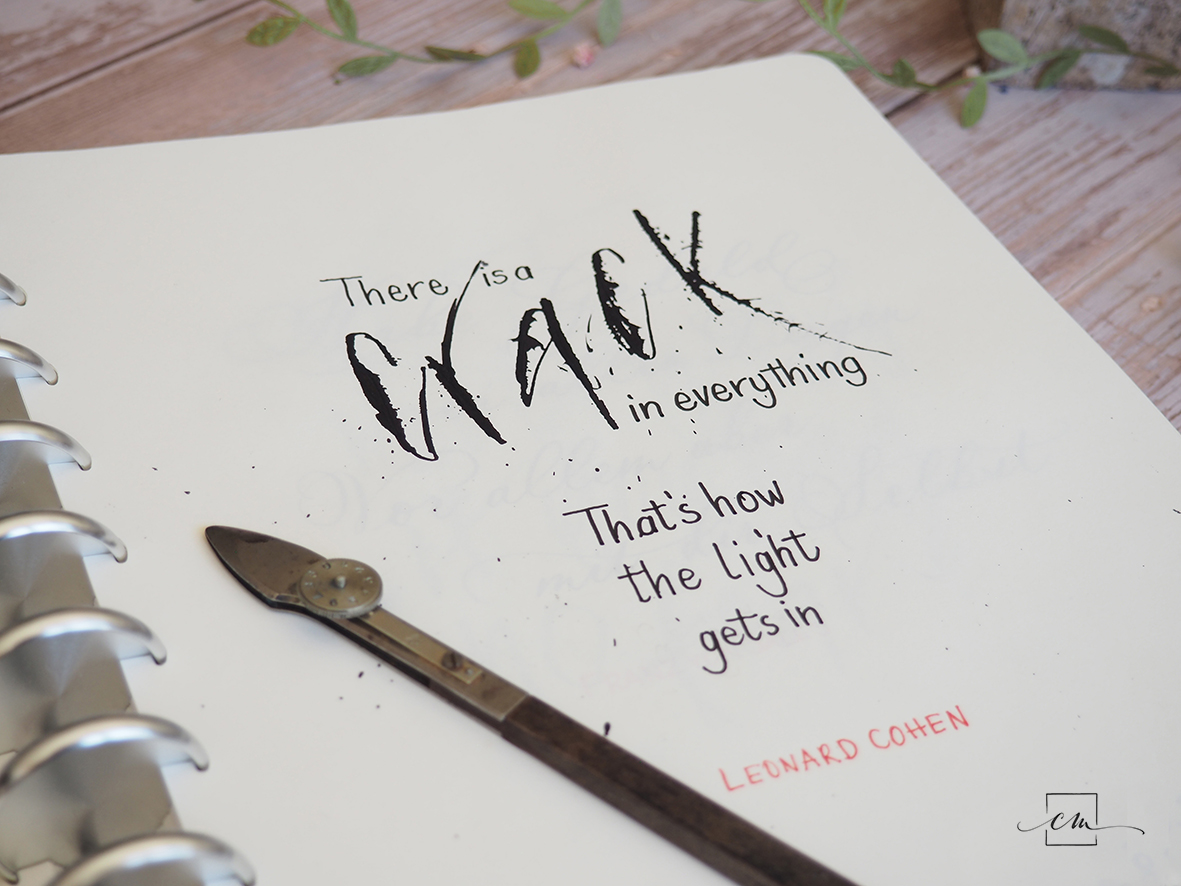 There is a
crack
in everything
That's how
the light
gets in
LEONARD COHEN
cm